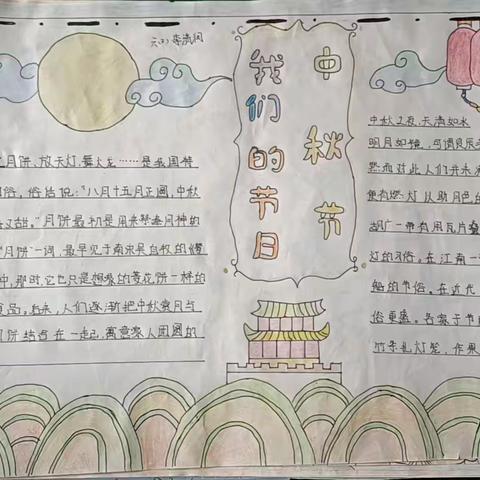 中秋节
我们的节日
月饼、放天灯、舞火龙……是我国特
俗。俗话说："八月十五月正圆,中秋
又甜。"月饼最初是用来祭奉月神的
"月饼"一词,最早见于南宋吴自牧的《梦
中,那时,它也只是想象的菱花饼一样的
食品。后来,人们逐渐把中秋赏月与
月饼结合在一起,寓意家人团圆的
中秋之夜,天清如水
明月如镜,可谓良辰
然而对此人们并未
便有"燃灯"以助月色的
湖广一带有用瓦片叠
灯的习俗。在江南一
船的节俗。在近代
俗更盛。各家于节前
竹条扎灯笼,作果